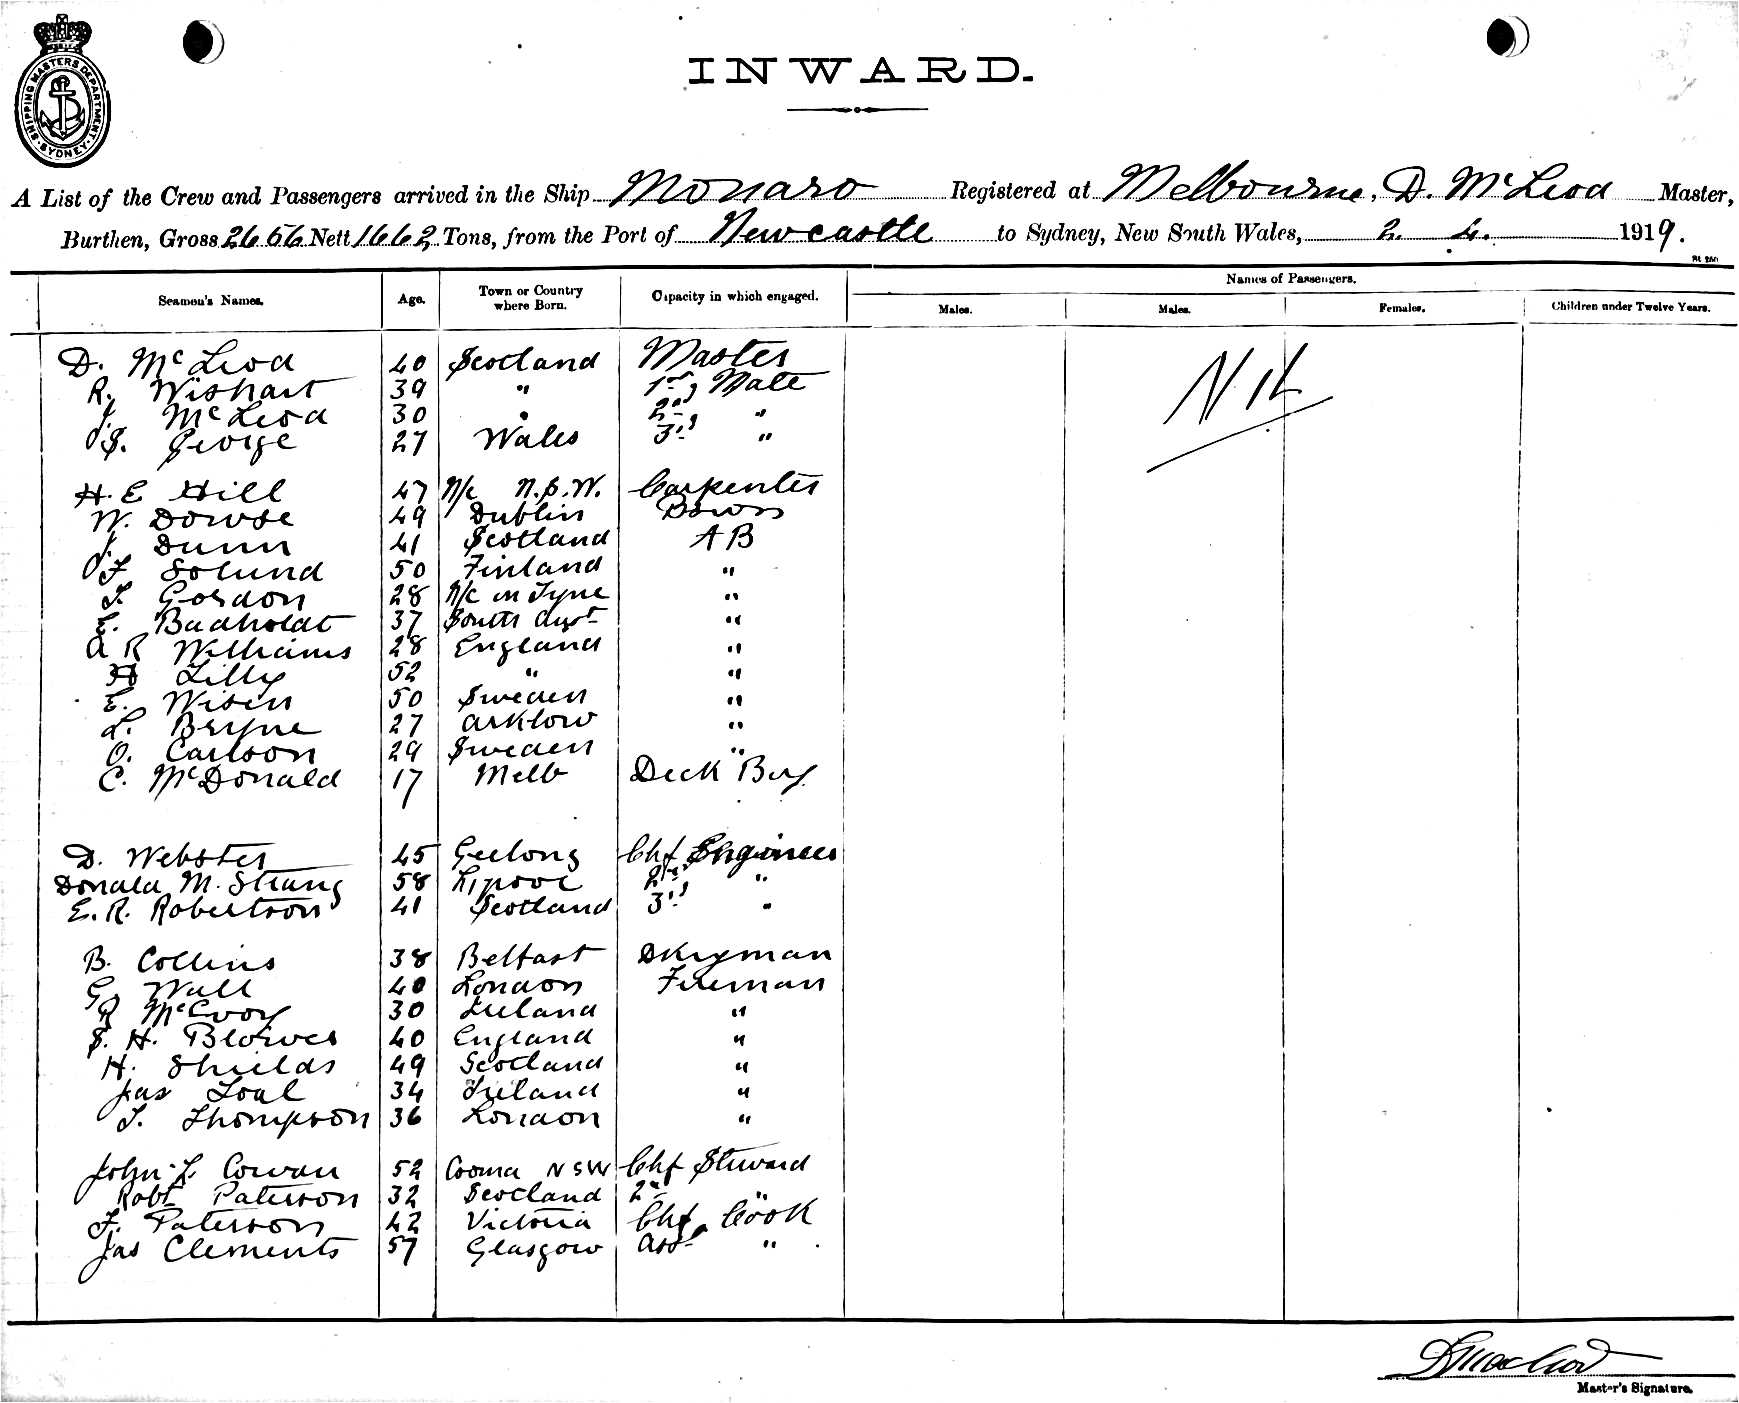 SHIPPING MASTERS DEPARTMENT. SYDNEY.
INWARD.
A List of the Crew and Passengers arrived in the Ship Monaro Registered at Melbourne, D. McLeod Master,
Burthen, Gross 2656 Nett 1662 Tons, from the Port of Newcastle to Sydney, New South Wales, 2. 4. 1919.
Names of Passengers.
Seamen's Names. Age. Town or Country where Born. Capacity in which engaged. Males. Males. Females. Children under Twelve Years.
D. McLeod 40 Scotland Master
Nil
R. Wishart 39 " 1st Mate
J. McLeod 30 " 2nd "
S. George 27 Wales 3rd "
H. E Hill 47 N/c N.S.W. Carpenter
W. Dowse 49 Dublin Bosun
J. Dunn 41 Scotland A B
F Solund 50 Finland "
T. Gordon 28 N/c on Tyne "
E. Badholdt 37 South Aust "
A R Williams 28 England "
H Lilly 52 " "
E. Wisen 50 Sweden "
L. Bryne 27 Arklow "
O. Carlson 29 Sweden "
C. McDonald 17 Melb Deck Boy
D. Webster 45 Geelong Chf Engineer
Donald M. Strang 58 L'pool 2nd "
E. R. Robertson 41 Scotland 3rd "
B. Collins 38 Belfast Dkyman
G. Wall 40 London Fireman
R McEvoy 30 Ireland "
S. H. Blowes 40 England "
H. Shields 49 Scotland "
Jas Loal 34 Ireland "
T. Thompson 36 London "
John L Cowan 52 Cooma NSW Chf Steward
Robt Paterson 32 Scotland 2nd "
F. Paterson 42 Victoria Chf Cook
Jas Clements 57 Glasgow Asst "
D MacLeod
Master's Signature.